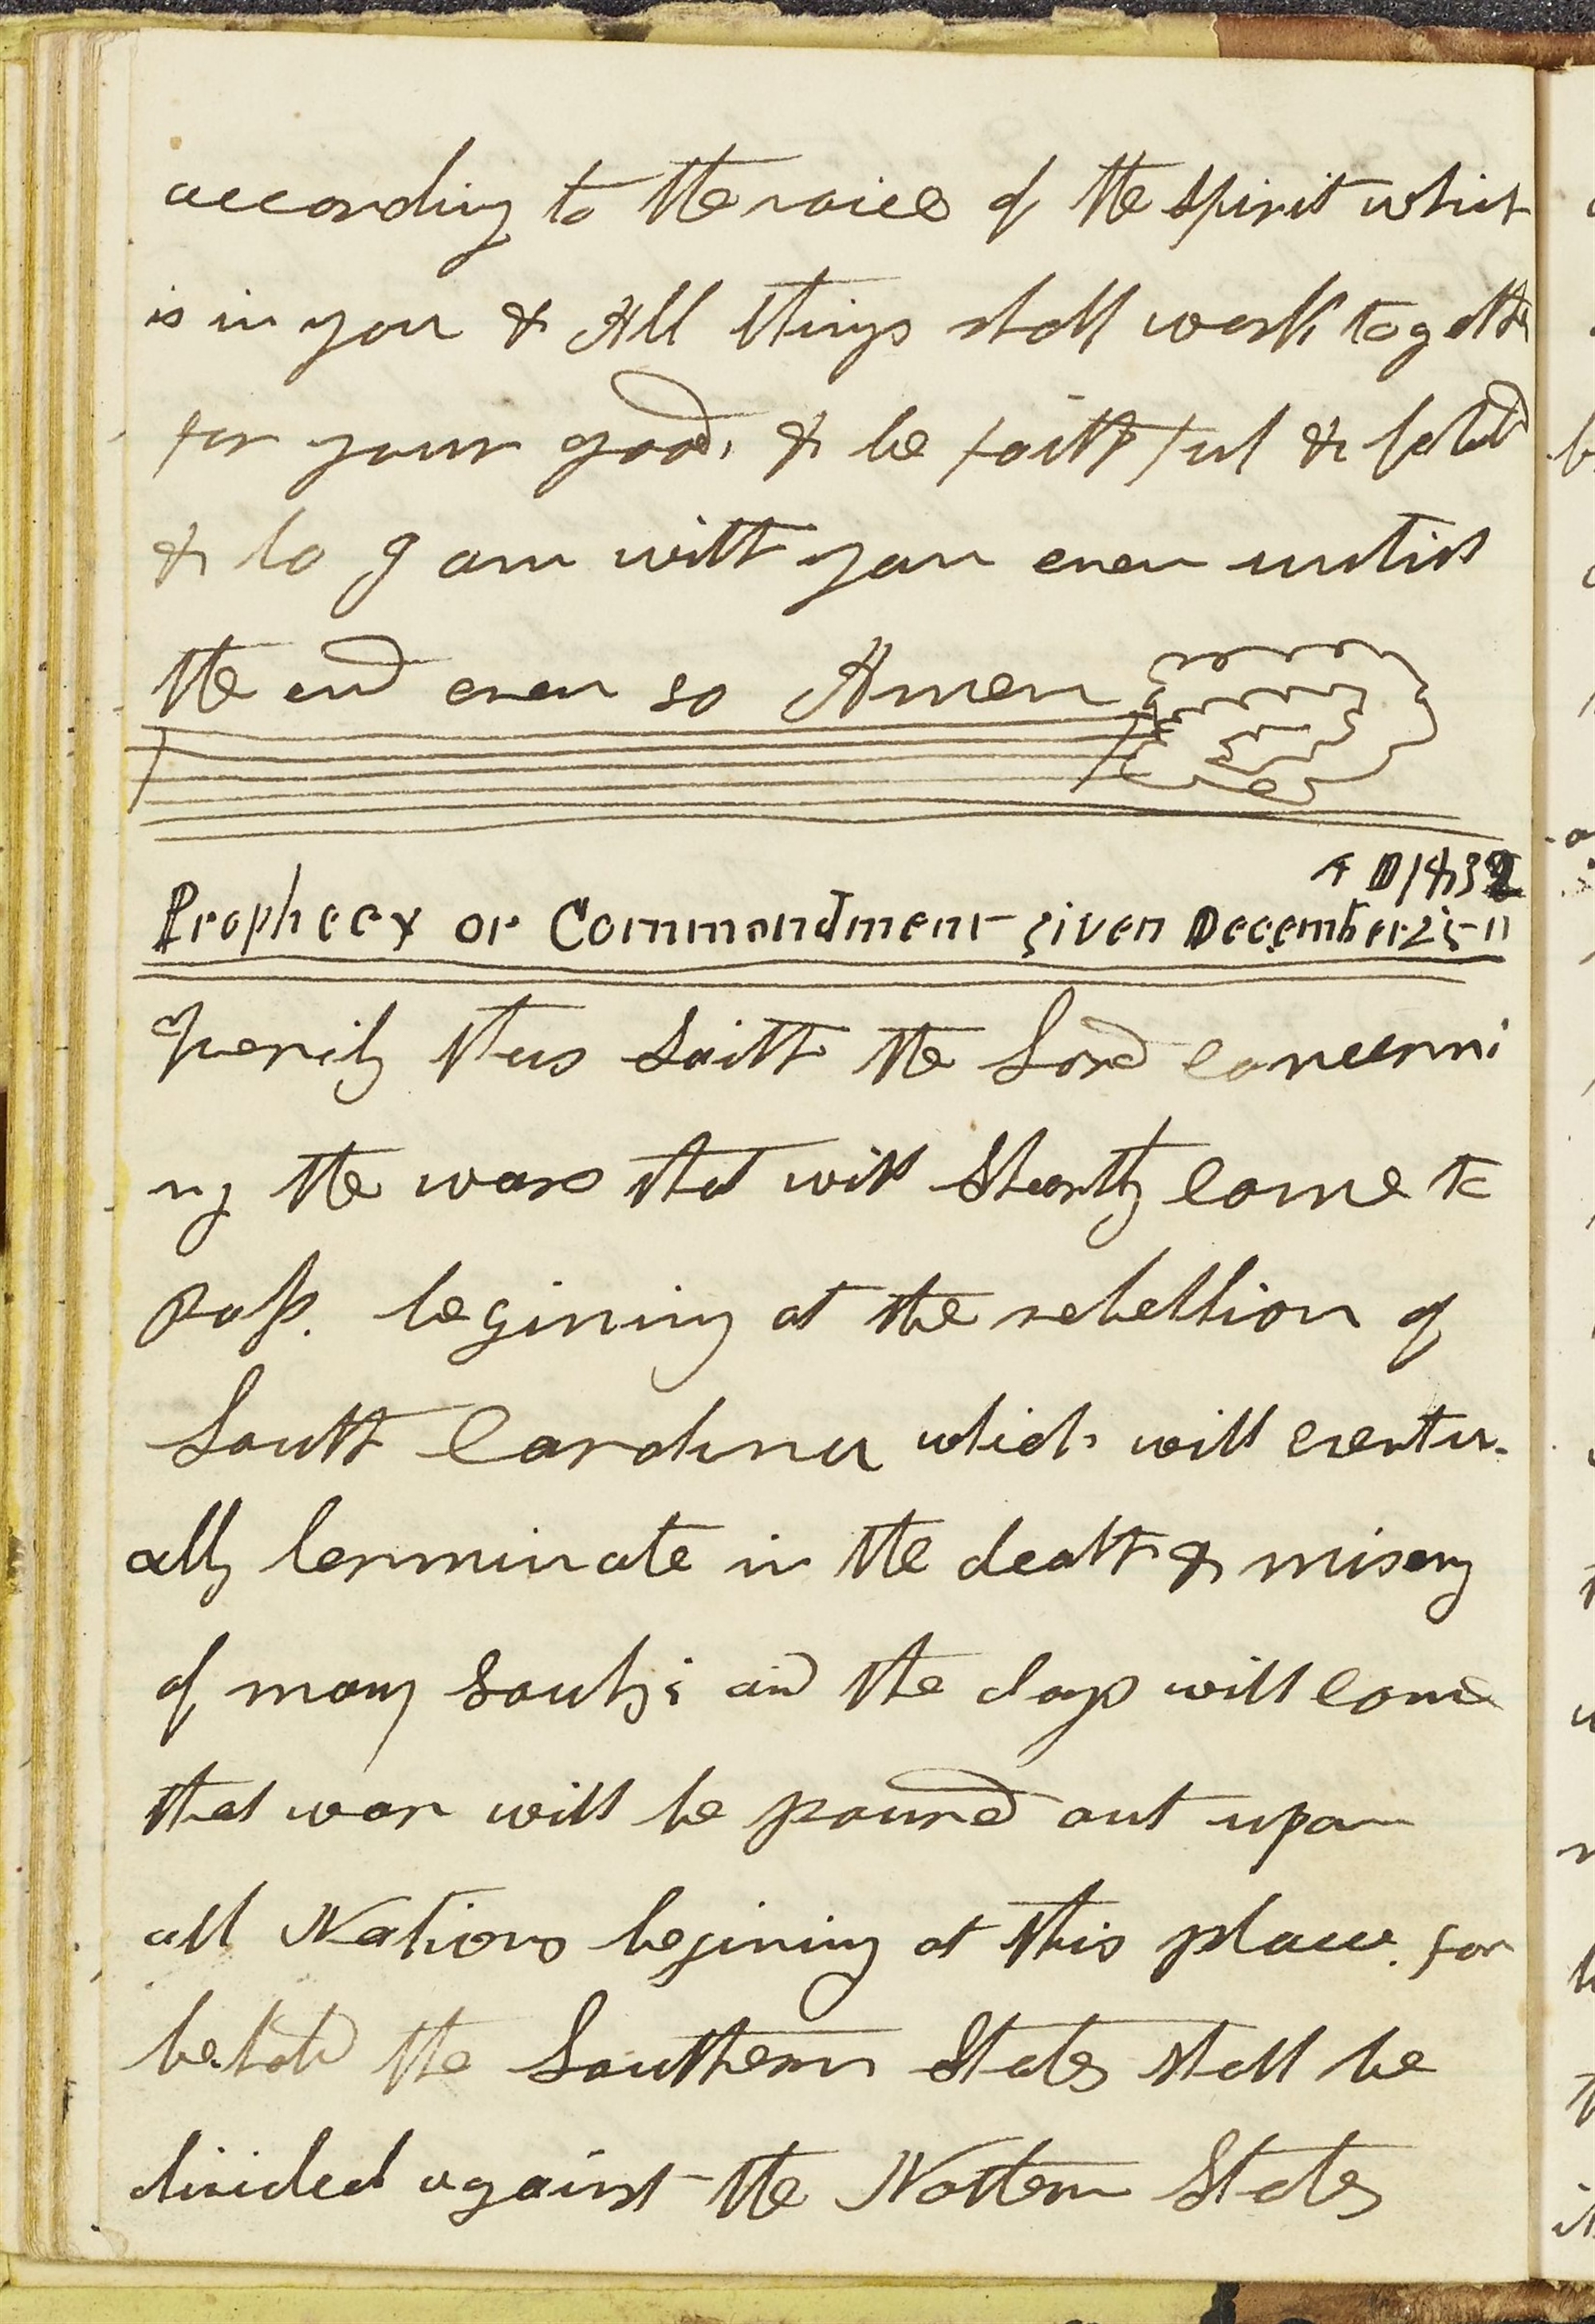 according to the voice of the Spirit which
is in you & All things shall work togeth
for your good, & be faithful & behold
& lo I am with you even untill
the end even so Amen
A D 1832
Prophecy or Commandment given December 25th
Verily thus Saith the Lord concerni
ng the wars that will Shortly come to
pass. begining at the rebellion of
South Carolina which will eventu-
ally terminate in the death & misery
of many Souls; and the days will come
that war will be poured out upon
all Nations begining at this place. for
behold the Southern States shall be
divided against the Nothern States